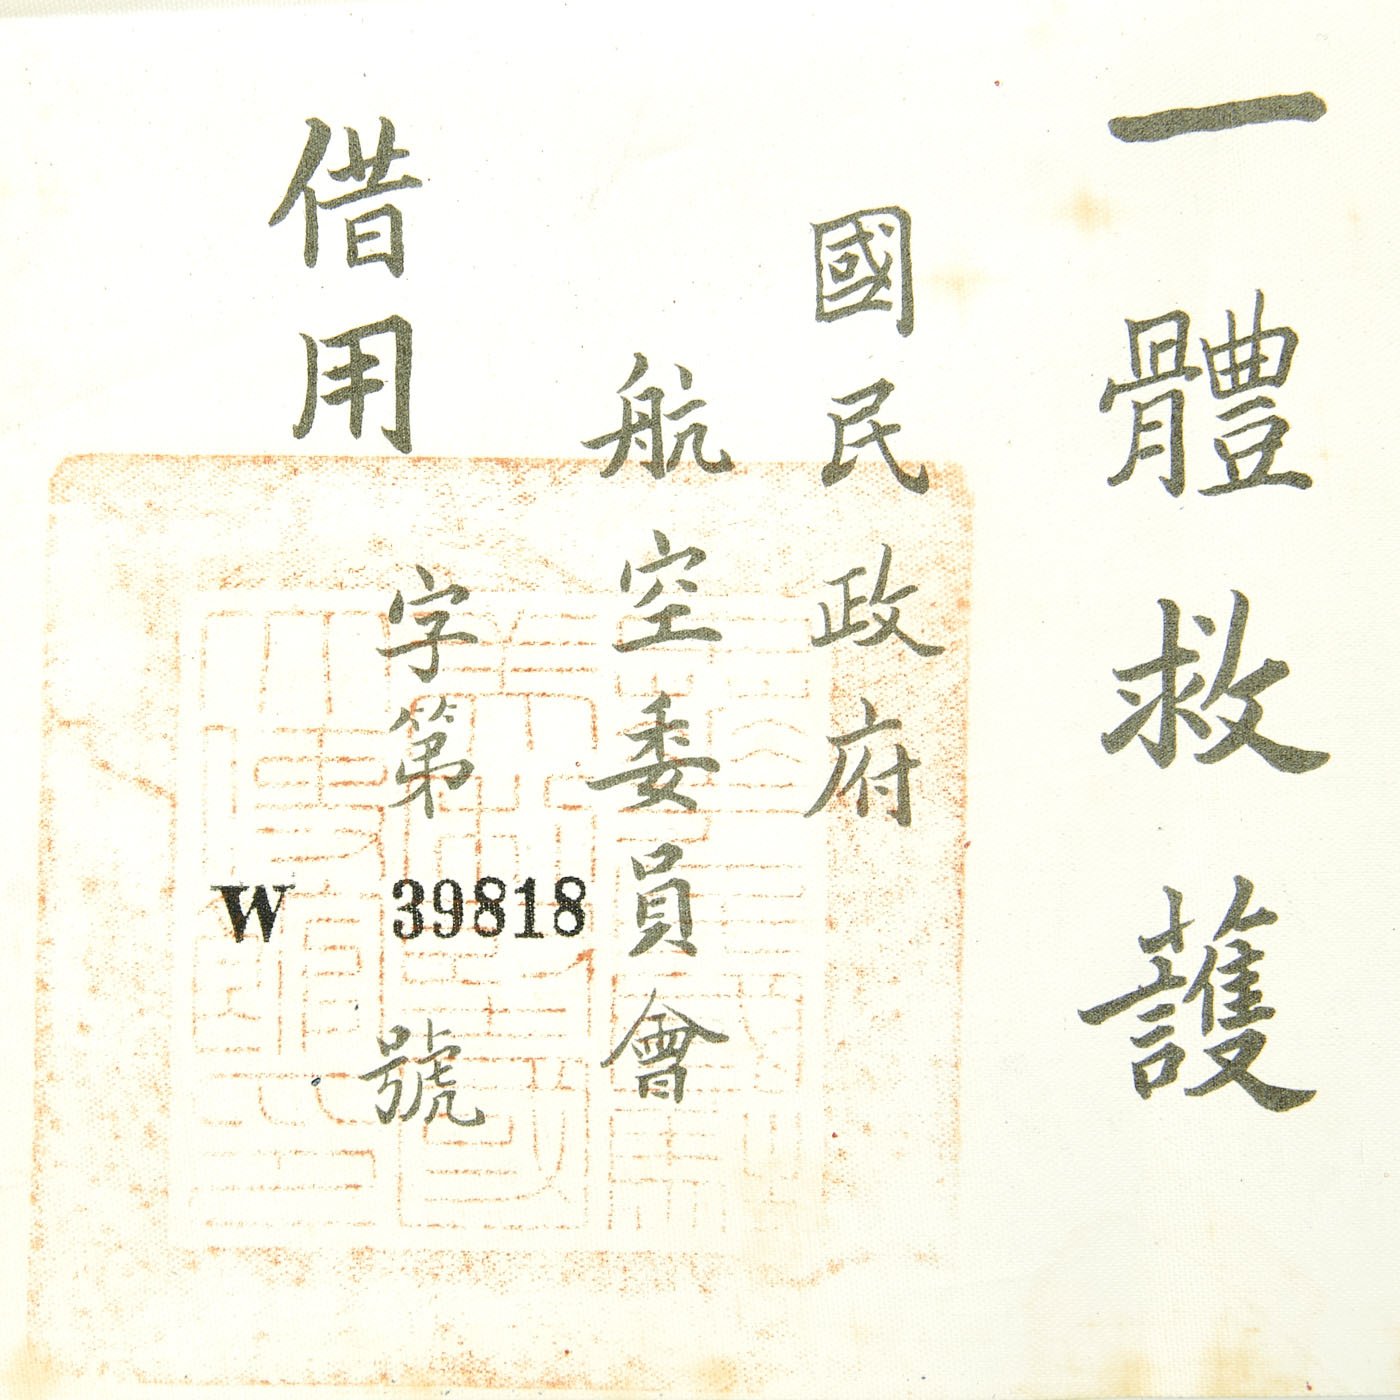 一體救護
國民政府
航空委員會
借用
字第
W 39818
號